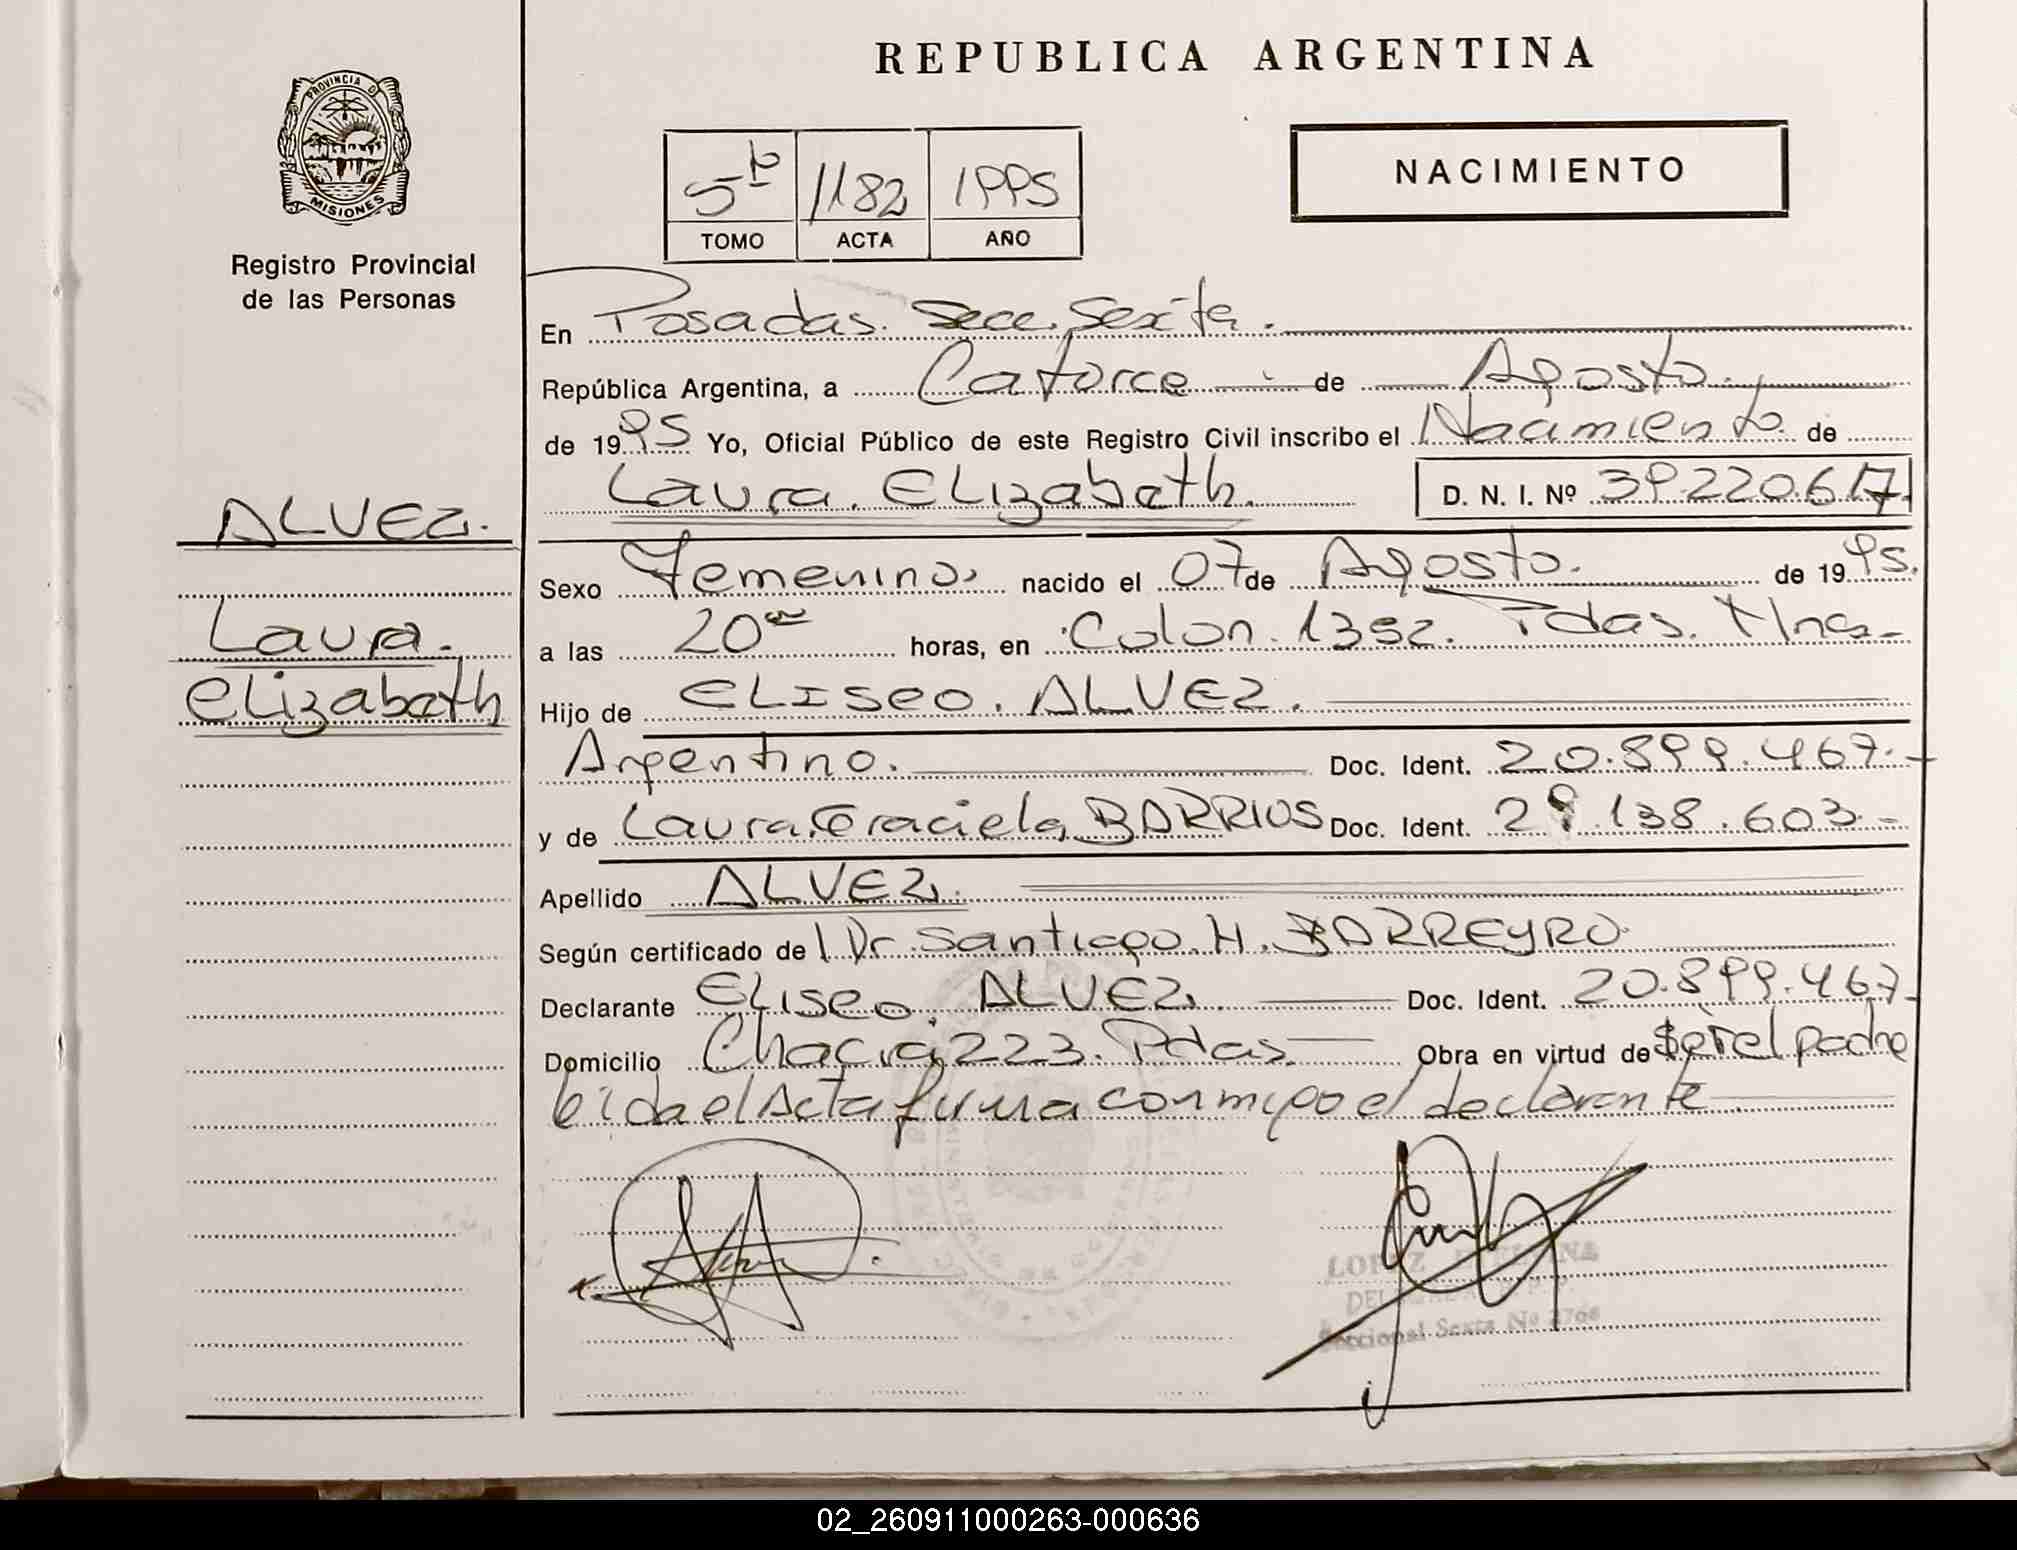 REPUBLICA ARGENTINA
PROVINCIA D
MISIONES
Registro Provincial
de las Personas
NACIMIENTO
5to 1182 1995
TOMO ACTA AÑO
En Posadas. Secc. Sexta.
República Argentina, a Catorce de Agosto
de 1995 Yo, Oficial Público de este Registro Civil inscribo el Nacimiento de
Laura Elizabeth. D. N. I. Nº 39.220.617
ALVEZ.
Laura.
Elizabeth
Sexo Femenino nacido el 07 de Agosto. de 1995.
a las 20 horas, en Colon. 1352. Pdas. Mnes
Hijo de ELISEO. ALVEZ.
Argentino. Doc. Ident. 20.899.467.-
y de Laura Graciela BARRIOS Doc. Ident. 29.138.603.-
Apellido ALVEZ.
Según certificado de Dr. Santiago H. BARREYRO
Declarante ELISEO. ALVEZ. Doc. Ident. 20.899.467-
Domicilio Chacra 223. Pdas. Obra en virtud de ser el padre
leida el Acta firma conmigo el declarante
LOPEZ
Seccional Sexta Nº
02_260911000263-000636